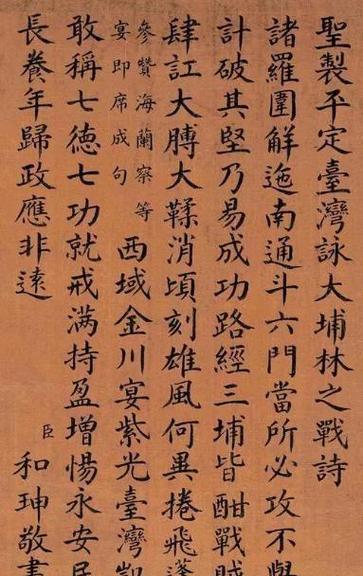 聖製平定臺灣詠大埔林之戰詩
諸羅圍解迤南通斗六門當所必攻不
計破其堅乃易成功路經三埔皆酣戰賊
肆訌大膊大鞣消頃刻雄風何異捲飛蓬
參贊海蘭察等
宴即席成句
西域金川宴紫光臺灣凱
敢稱七德七功就戒满持盈增惕永安民
長養年歸政應非遠
臣和珅敬書